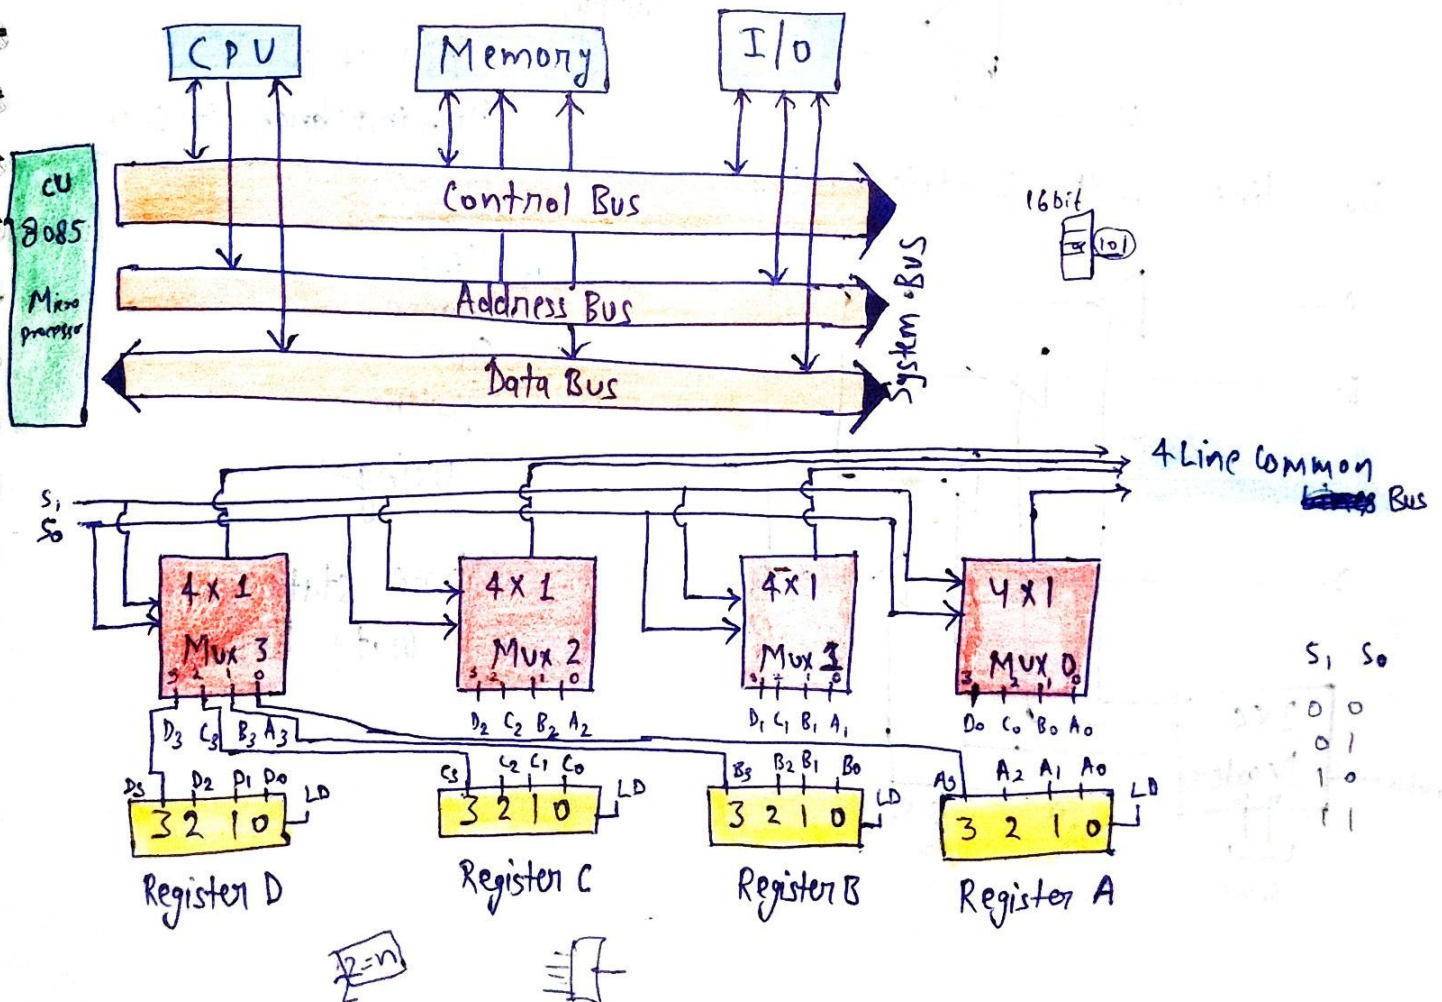 CPU
Memory
I/O
CU
8085
Micro
processor
Control Bus
Address Bus
Data Bus
System Bus
16bit
101
4 Line Common
Bus
S1
S0
4 X 1
Mux 3
3 2 1 0
4 X 1
Mux 2
3 2 1 0
4 X 1
Mux 1
3 2 1 0
4 X 1
MUX 0
3 2 1 0
D3 C3 B3 A3
D2 C2 B2 A2
D1 C1 B1 A1
D0 C0 B0 A0
S1 S0
0 0
0 1
1 0
1 1
D3 D2 D1 D0
LD
3 2 1 0
Register D
C3 C2 C1 C0
LD
3 2 1 0
Register C
B3 B2 B1 B0
LD
3 2 1 0
Register B
A3 A2 A1 A0
LD
3 2 1 0
Register A